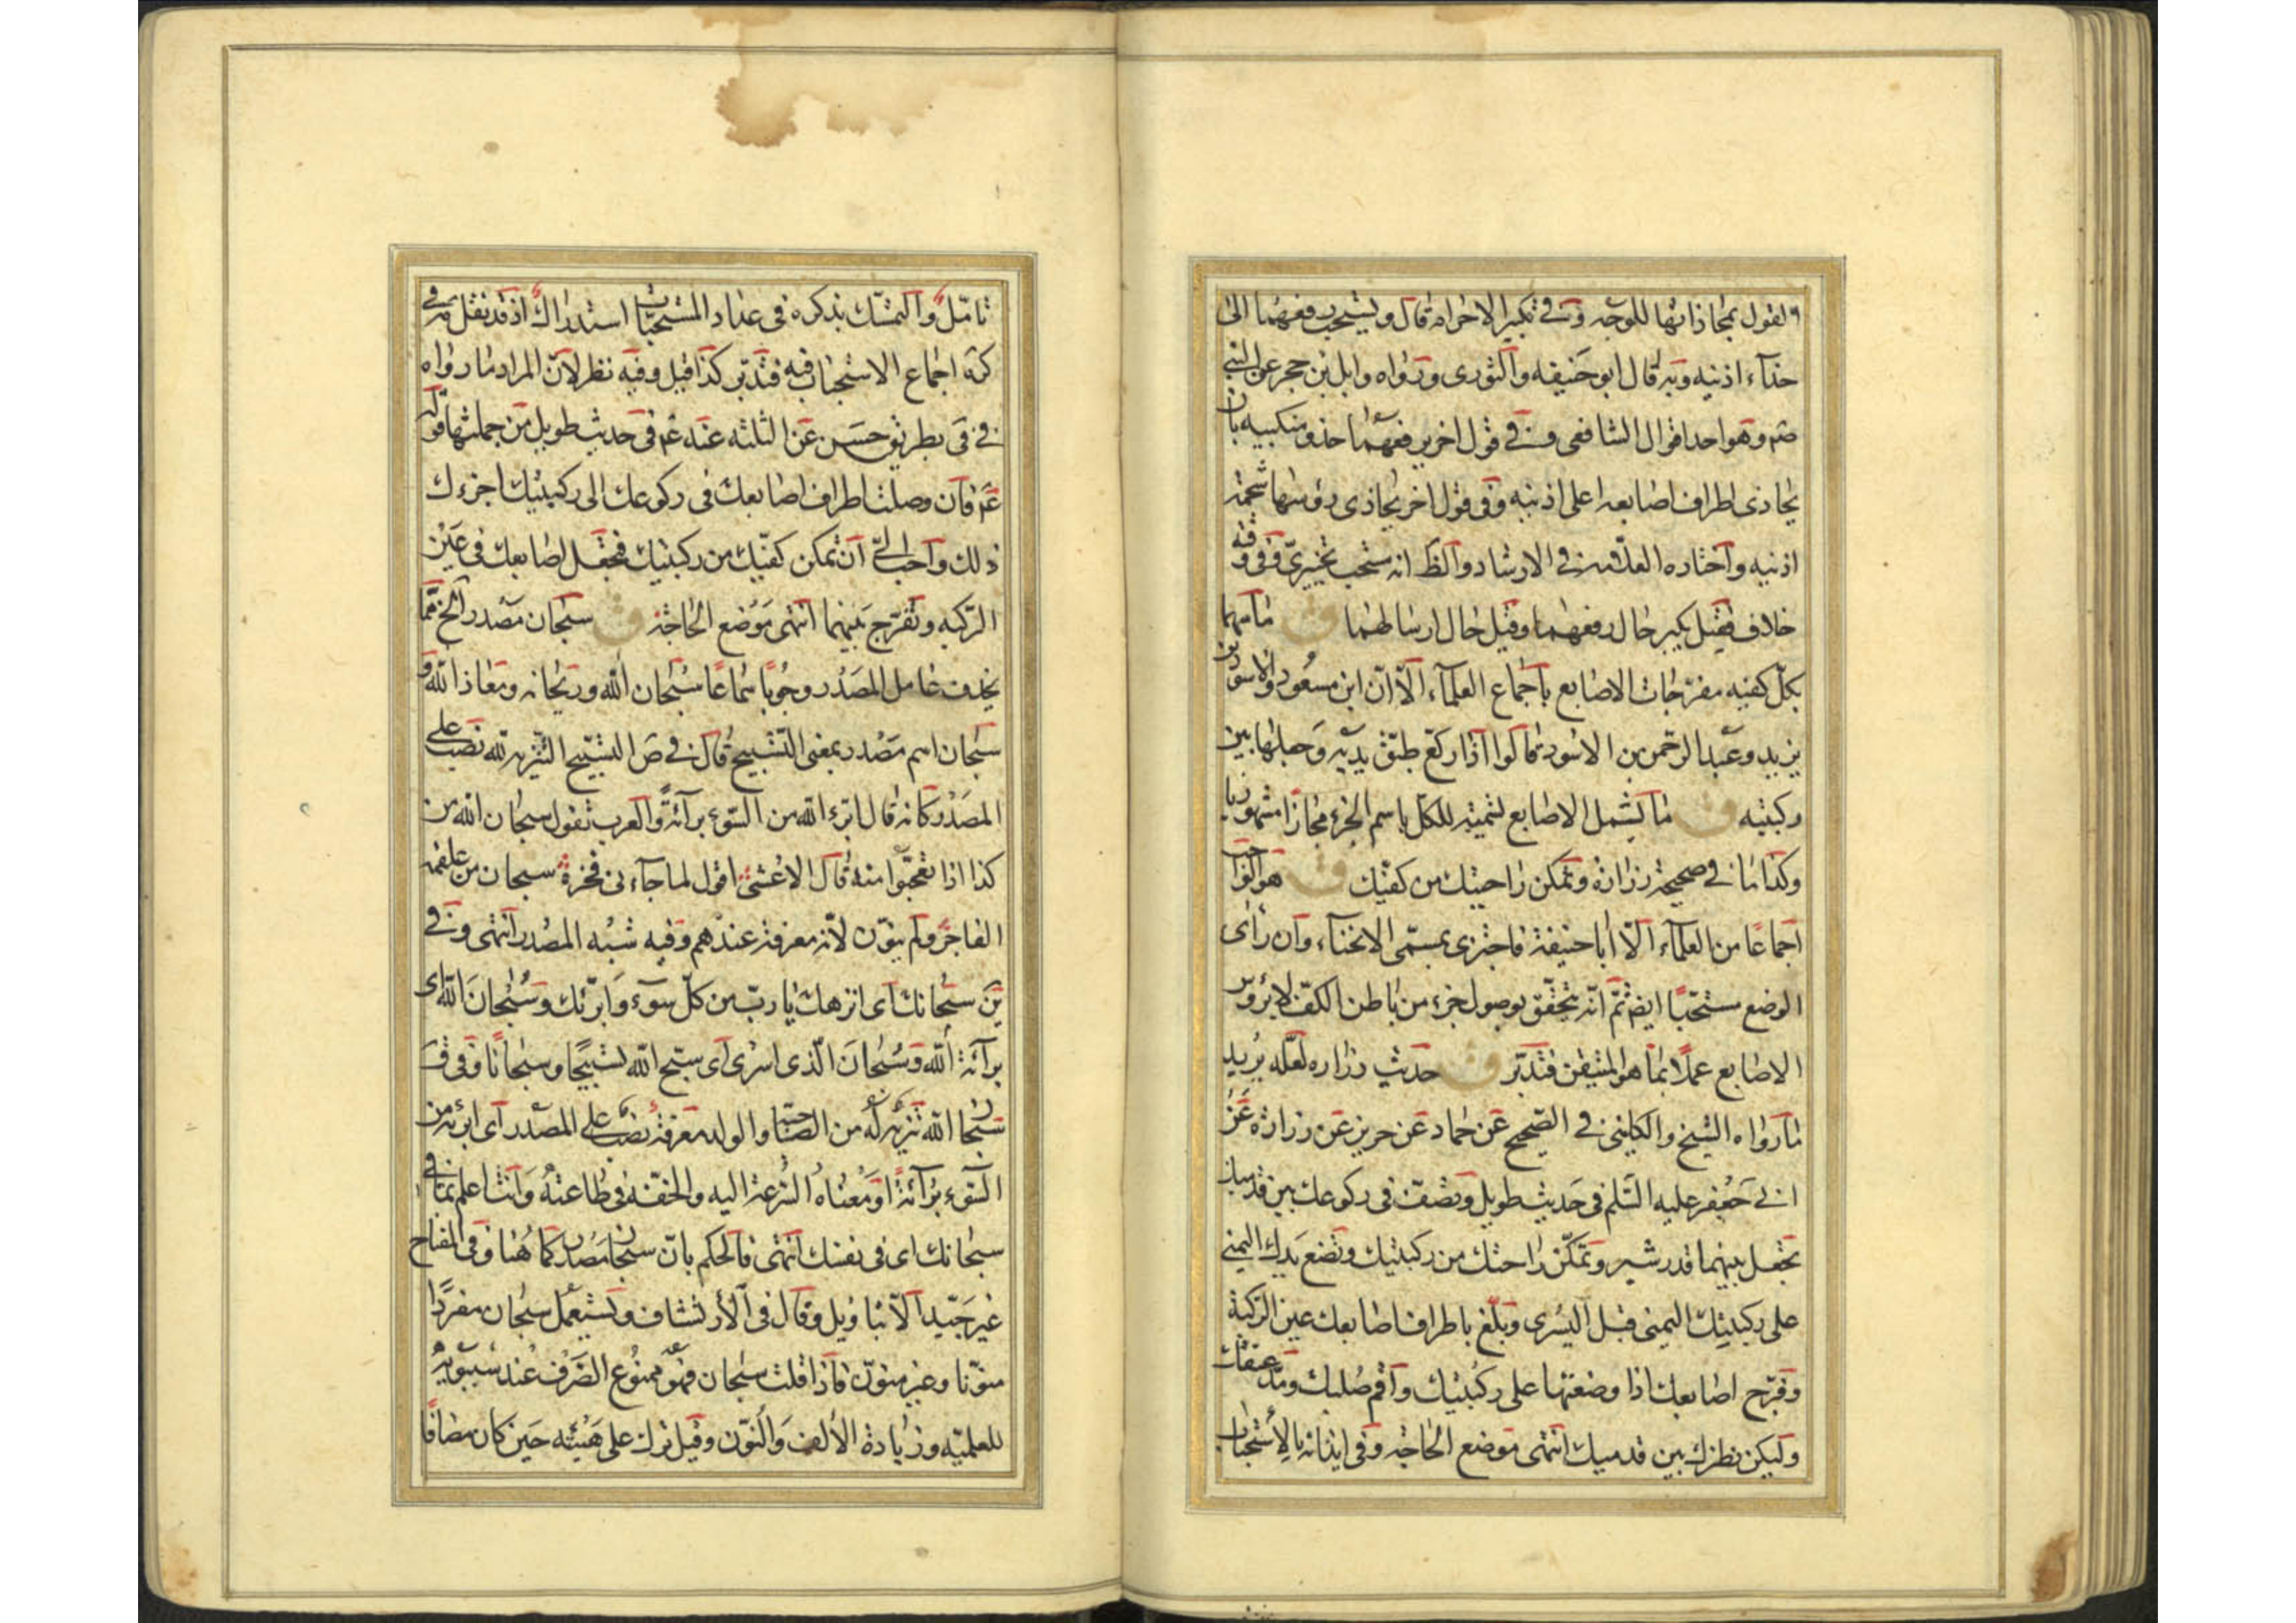 القول بمحاذاتها للوجه وفي تكبير الاحرام قال ويستحب رفعهما الى
حذآء اذنيه وبه قال ابو حنيفه والثورى ورواه وابل بن حجر عن النبي
صم وهو احد اقوال الشافعى وفي قول اخر يرفعهما حذو منكبيه بان
يحاذى اطراف اصابعه اعلى اذنيه وفى قول اخر يحاذى رؤسها شحمة
اذنيه واختاره العلامه في الارشاد والظ انه ستحب تخييرى وفى وقته
خلاف فقيل يكبر حال رفعهما وقيل حال ارسالهما ق ماسهما
بكل كفيه مفرجات الاصابع باجماع العلمآء الا ان ابن مسعود والاسود بن
يزيد وعبد الرحمن بن الاسود قالوا اذا ركع طبق يديه وجعلها بين
ركبتيه ق ما يشمل الاصابع لتميته للكل باسم الجزء مجازا مشهورا
وكذا ما في صحيحة زرارة وتمكن راحيتك من كفيك ق هو الواجب
اجماعا من العلمآء الا ابا حنيفة فاجتزى بمسمى الانحنآء وان رأى
الوضع مستحبا ايض ثم انه يتحقق بوصول جزء من باطن الكف لا برؤس
الاصابع عملا بما هو المتيقن فتدبر ق حديث زراره لعله يريد
ما رواه الشيخ والكلينى في الصحيح عن حماد عن حريز عن زرارة عن
ابي جعفر عليه السلم فى حديث طويل وتصف فى ركوعك بين قدميك
تجعل بينهما قدر شبر وتمكن راحتك من ركبتيك وتضع يدك اليمني
على ركبتيك اليمنى قبل اليسرى وبلغ باطراف اصابعك عين الركبة
وفرج اصابعك اذا وضعتها على ركبتيك واقم صلبك ومد عنقك
وليكن نظرك بين قدميك انتهى موضع الحاجة وفى ايذانه بالاستحباب
تامل والتمسك بذكره فى عداد المستحبات استدراك اذ قد نقل في
كره اجماع الاستحباب فيه فتدبر كذا قيل وفيه نظر لان المراد ما رواه
في فى بطريق حسن عن الثلثه عنه عم فى حديث طويل من جملتها قوله
عم فان وصلت اطراف اصابعك فى ركوعك الى ركبتيك اجزءك
ذلك واحب الى ان تمكن كفيك من ركبتيك فجعل اصابعك فى عين
الركبه وتفرج بينهما انتهى موضع الحاجة ق سبحان مصدر الخ مما
يحذف عامل المصدر وجوبا سماعا سبحان الله وريحانه ومعاذ الله و
سبحان اسم مصدر بمعنى التسبيح قال في ص التسبيح التنزيه لله نصب على
المصدر كانه قال ابرء الله من السوء برآئة والعرب تقول سبحان الله من
كذا اذا تعجبوا منه قال الاعشى اقول لما جآءنى فخرة سبحان من علقمة
الفاخر ولم ينون لانه معرفة عندهم وفيه شبه المصدر انتهى وفي
ين سبحانك اى انزهك يا رب من كل سوء وابرئك وسبحان الله اى
برآئة الله وسبحان الذى اسرى اى سبح الله تسبيحا وسبحانا وفى ق
سبحان الله تنزيه له من الصاحبة والولد معرفة نصب على المصدر اى ابرئه من
السوء برآئة او معناه السرعة اليه والخفة فى طاعته وانت اعلم بما في
سبحانك اى فى نفسك انتهى فالحكم بان سبحان مصدر كما هنا وفى المفتاح
غير جيد الا بتاويل وقال فى الأرتشاف ويستعمل سبحان مفردا
منونا وغير منون فاذا قلت سبحان فهو ممنوع الصرف عند سيبويه
للعلميه وزيادة الألف والنون وقيل ترك على هيئته حين كان مضافا